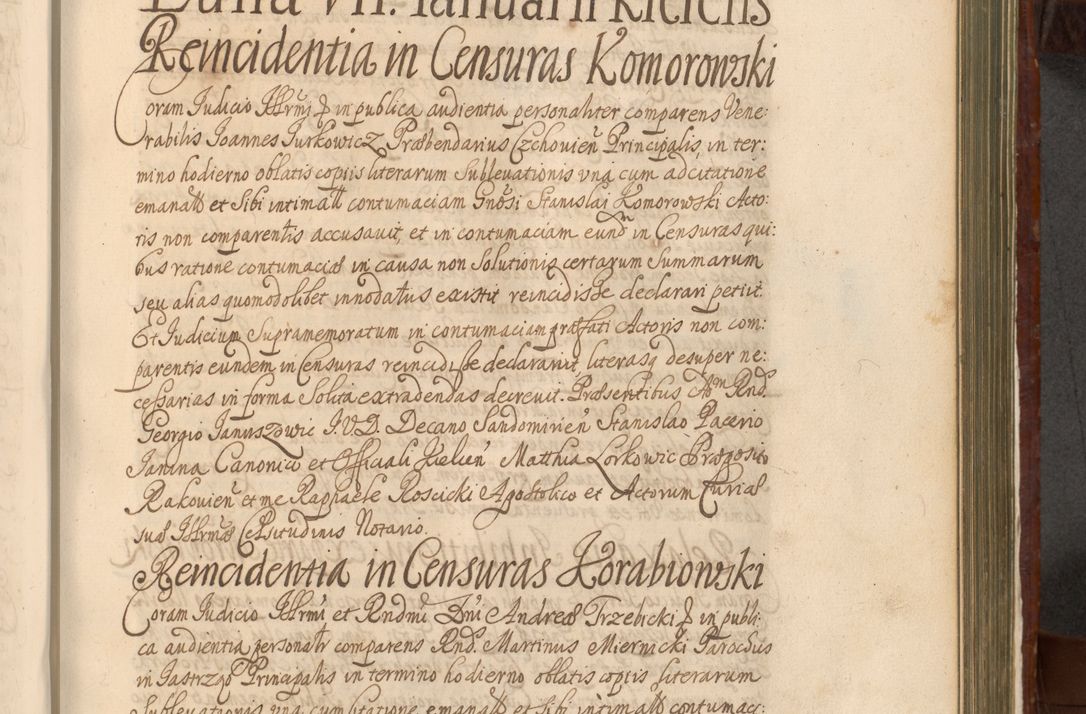 Reincidentia in Censuras Komorowski
Coram Judicio Illrmi & in publica audientia personaliter comparens Vene:
rabilis Joannes Jurkowicz Præbendarius Czchovien̄ Principalis, in ter:
mino hodierno oblatis copiis literarum Sublevationis vna cum adcitatione
emanatt et Sibi intimatt contumaciam Gnōsi Stanislai Komorowski Acto:
ris non comparentis accusauit, et in contumaciam eundm in Censuras qui:
bus ratione contumaciæ in causa non Solutionis certarum Summarum
seu alias quomodolibet innodatus existit reincidisse declarari petiit.
Et Judicium Supramemoratum in contumaciam præfati Actoris non com:
parentis eundem in Censuras reincidisse declarauit, literasq desuper ne:
cessarias in forma Solita extradendas decreuit. Præsentibus Adm Rnd.s
Georgio Januszowic J.V.D. Decano Sandomirien̄ Stanislao Pacerio
Janina Canonico et Officiali Kielien̄ Matthia Lorkowic Præposito
Rakovien̄ et me Raphaele Roscicki Apostolico et Actorum Curiæ
suæ Illrmæ Celsitudinis Notario.
Reincidentia in Censuras Korabiowski
Coram Judicio Illrmi et Rndmi Dni Andreæ Trzebicki & in publi:
ca audientia personalr comparens Rnd. Martinus Miernicki Parochus
in Jastrząb Principalis in termino hodierno oblatis copiis literarum
Sublevationis vna cum citatione emanatt et Sibi intimatt contumac: